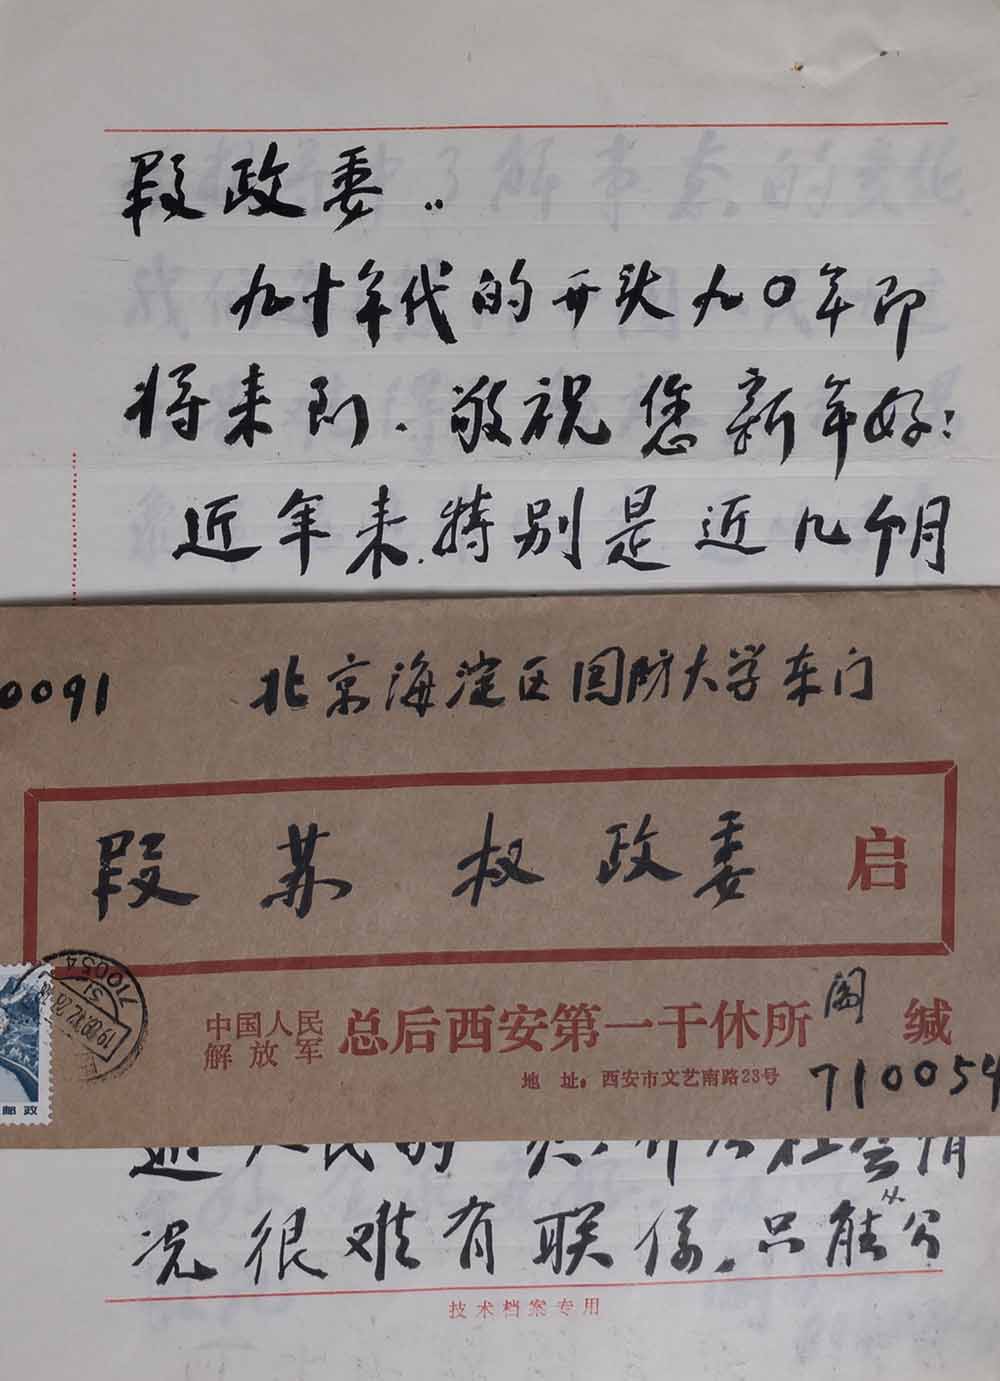 段政委：
九十年代的开头九0年即
将来到、敬祝您新年好！
近年来，特别是近几个月
0091
北京海淀区国防大学东门
段苏权政委 启
中国人民
解放军
总后西安第一干休所 阎 缄
地 址：西安市文艺南路23号
710054
710054
邮政
人民的
况很难有联係，只能从公
技术档案专用